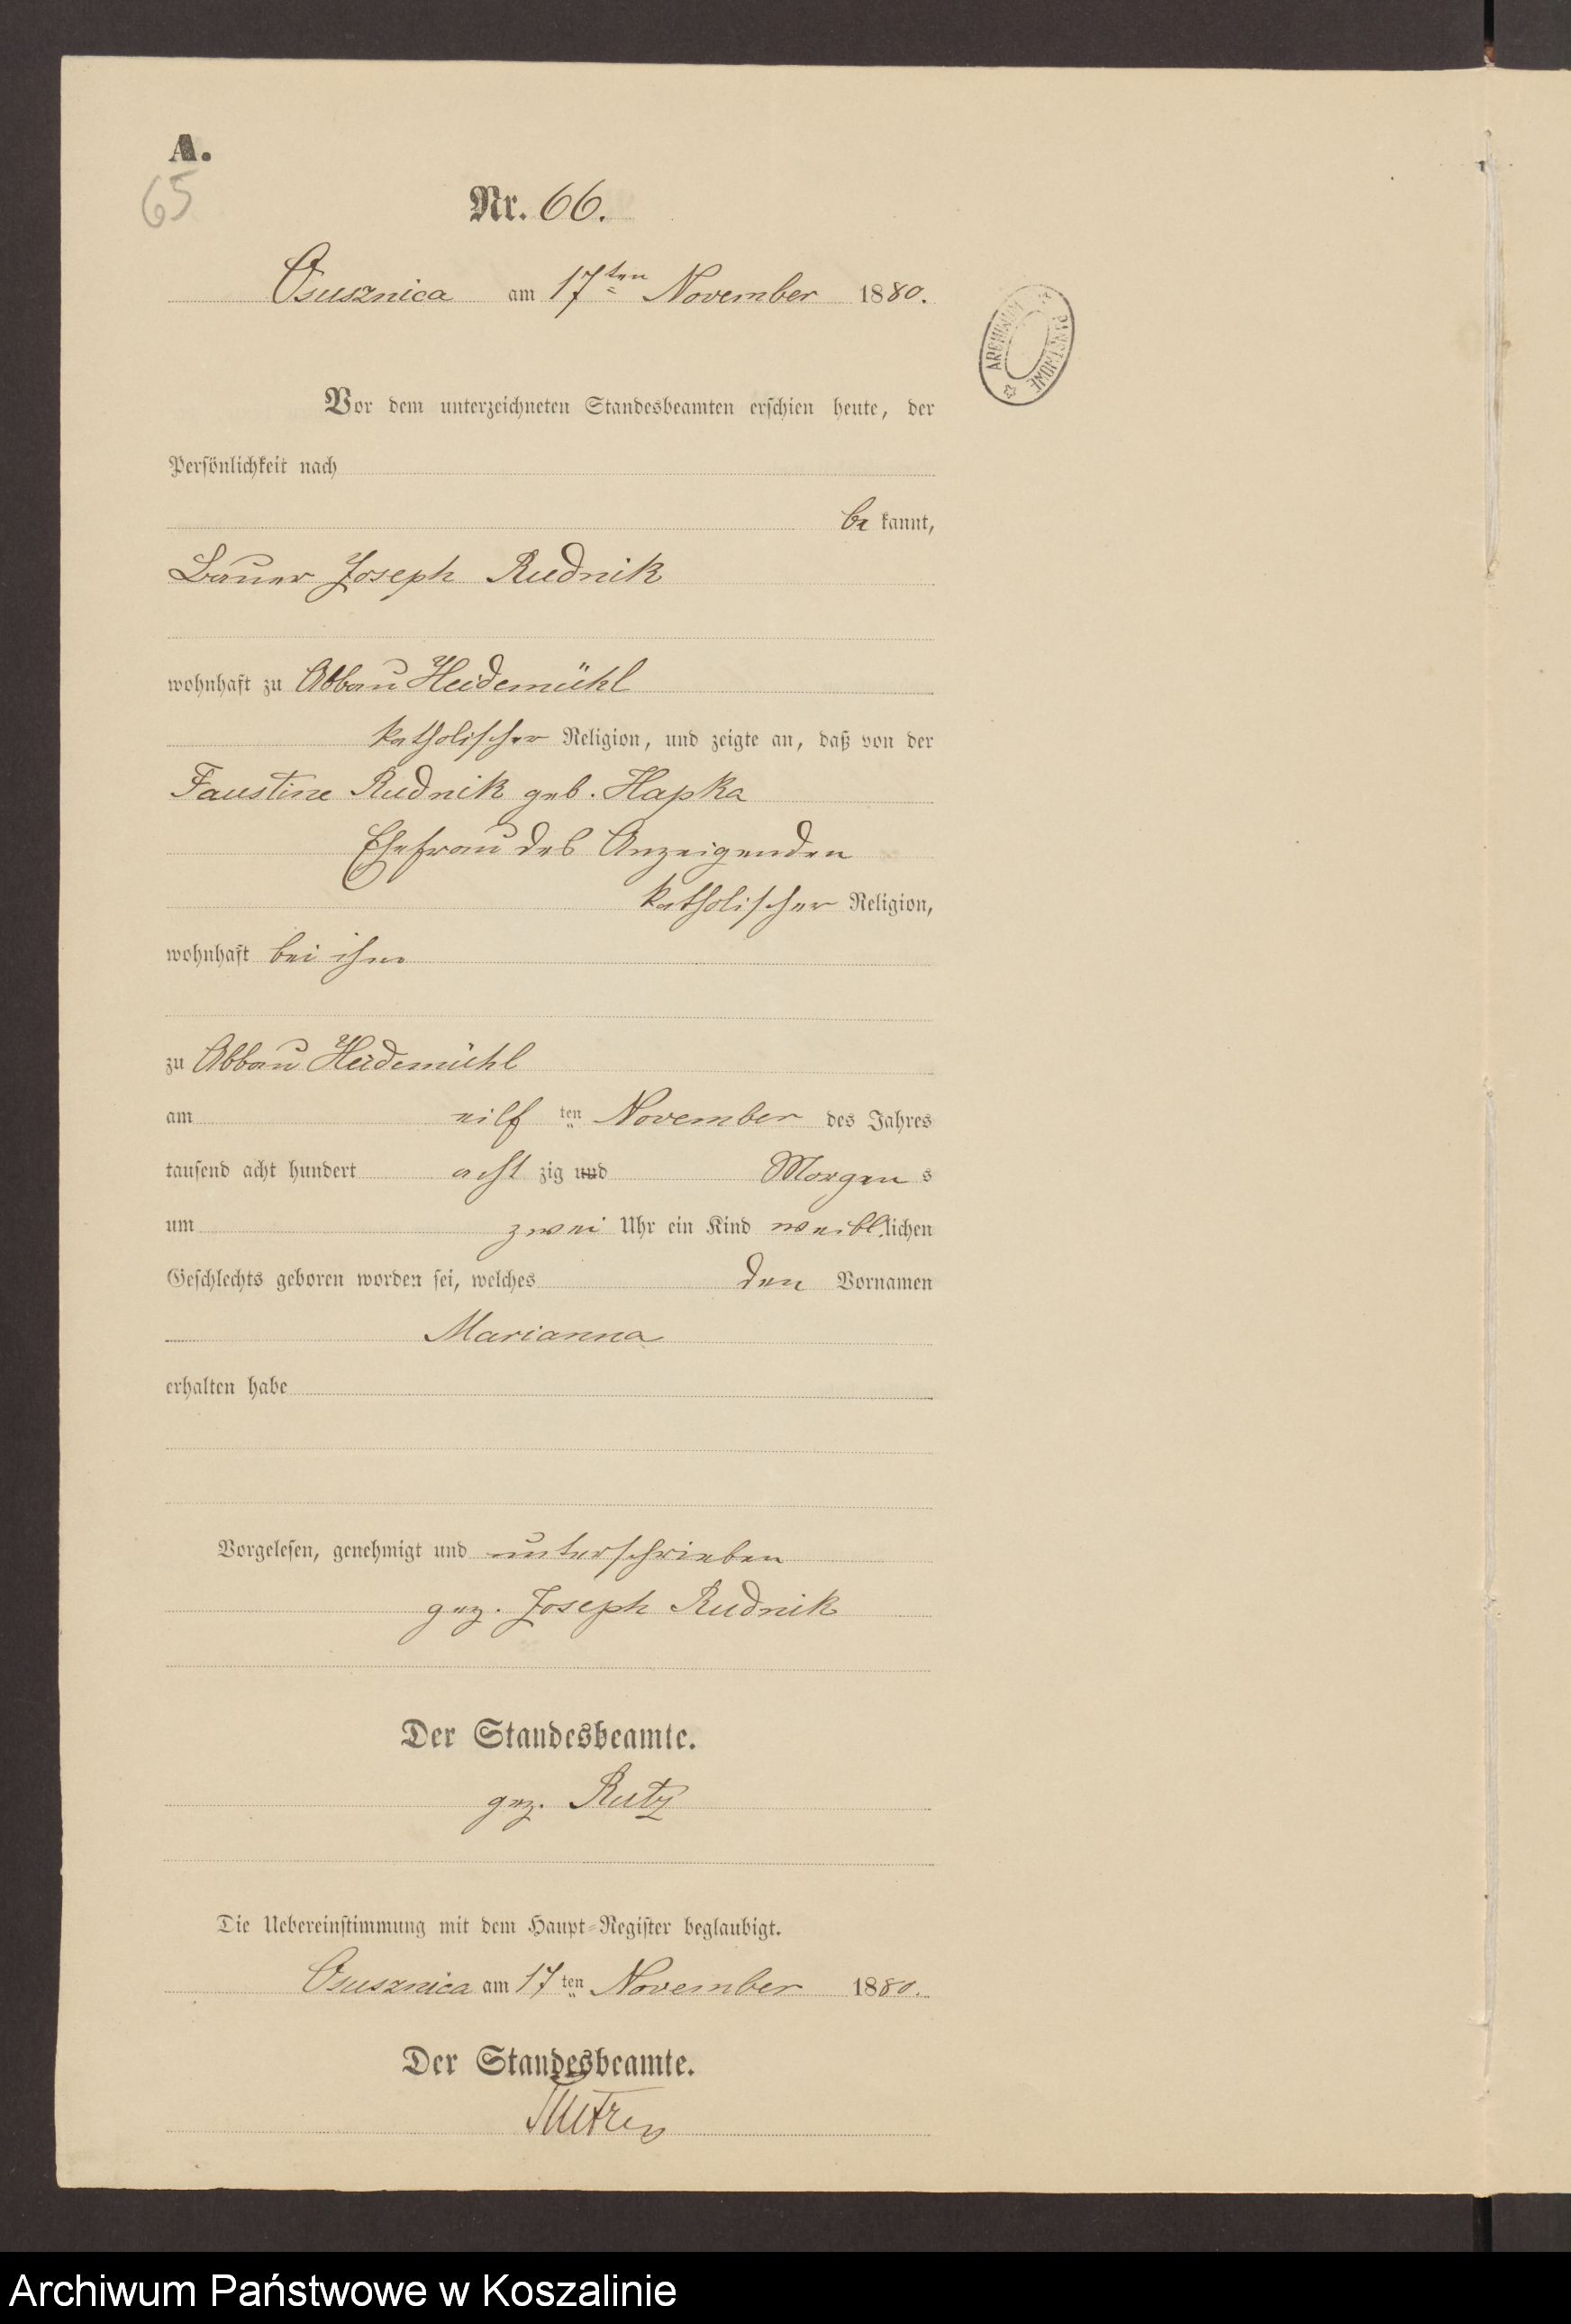 A.
65
Nr. 66.
Osusznica am 17ten November 1880.
ARCHIWUM PAŃSTWOWE
Vor dem unterzeichneten Standesbeamten erschien heute, der
Persönlichkeit nach
be kannt,
Bauer Joseph Rudnik
wohnhaft zu Abbau Heidemühl
katholischer Religion, und zeigte an, daß von der
Faustine Rudnik geb. Hapka
Ehefrau des Anzeigenden
katholischer Religion,
wohnhaft bei ihm
zu Abbau Heidemühl
am eilf ten November des Jahres
tausend acht hundert acht zig und Morgen s
um zwei Uhr ein Kind weibl.lichen
Geschlechts geboren worden sei, welches den Vornamen
Marianna
erhalten habe
Vorgelesen, genehmigt und unterschrieben
gez. Joseph Rudnik
Der Standesbeamte.
gez. Rutz
Die Uebereinstimmung mit dem Haupt-Register beglaubigt.
Osusznica am 17 ten November 1880.
Der Standesbeamte.
Archiwum Państwowe w Koszalinie